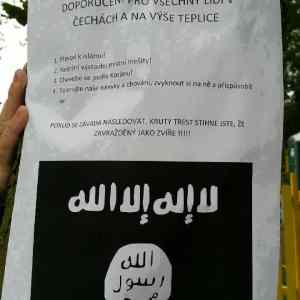 DOPORUČENÍ PRO VŠECHNY LIDI V
ČECHÁCH A NA VÝŠE TEPLICE
1. Přejít k islámu!
2. výstavbu první mešity!
3. Chovejte se podle Koránu!
4. naše návyky a chování, zvyknout si na ně a přizpůsobit
se
POKUD SE ZÁVADA NÁSLEDOVAT, KRUTÝ TREST STIHNE JSTE, ŽE
ZAVRAŽDĚNÝ JAKO ZVÍŘE !!!!!
لا إله إلا الله
الله
رسول
محمد